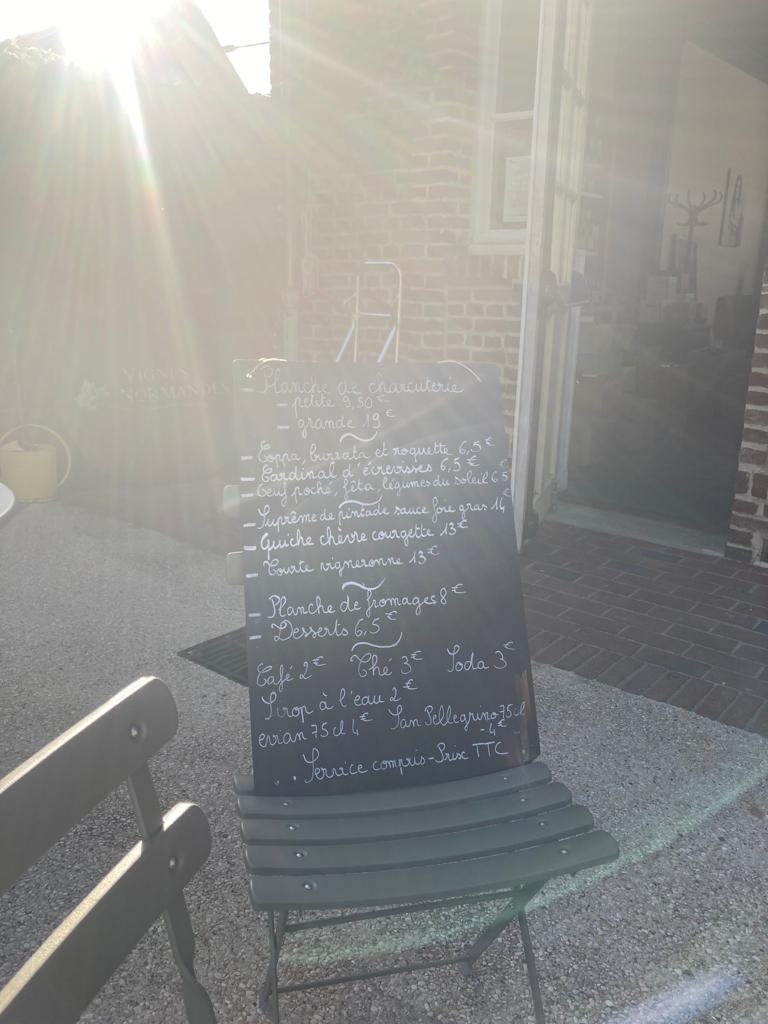 VIGNES
NORMANDES
- Planche de charcuterie
- petite 9,50€
- grande 19€
- Coppa, burrata et roquette 6,5€
- Cardinal d'écrevisses 6,5€
- Oeuf poché, fêta, légumes du soleil 6,5€
- Suprême de pintade sauce foie gras 14€
- Quiche chèvre courgette 13€
- Tourte vigneronne 13€
- Planche de fromages 8€
- Desserts 6,5€
Café 2€ Thé 3€ Soda 3€
Sirop à l'eau 2€
evian 75cl 4€ San Pellegrino 75cl
- 4€
Service compris - Prix TTC